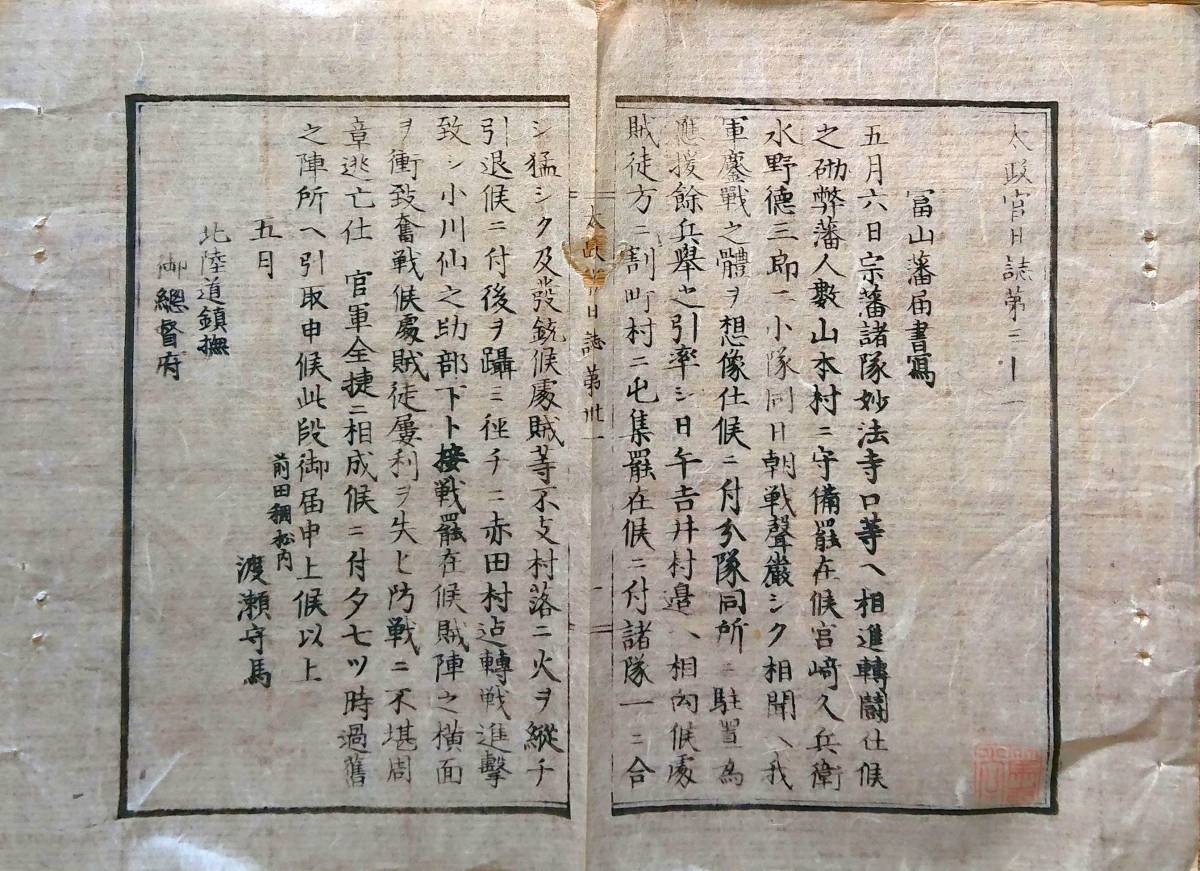 太政官日誌第三十一
冨山藩届書寫
五月六日宗藩諸隊妙法寺口等ヘ相進轉鬪仕候
之砌弊藩人數山本村ニ守備罷在候宮﨑久兵衛
水野德三郎二小隊同日朝戦聲嚴シク相聞ヘ我
軍鏖戰之體ヲ想像仕候ニ付分隊同所ニ駐置為
應援餘兵舉而引率シ日午吉井村邉ヘ相向候處
賊徒方ニ割町村ニ屯集罷在候ニ付諸隊一ニ合
太政官日誌第卅一
シ猛シク及發銃候處賊等不支村落ニ火ヲ縱チ
引退候ニ付後ヲ躡ミ徑チニ赤田村迠轉戦進擊
致シ小川仙之助部下ト接戦罷在候賊陣之横面
ヲ衝致奮戦候處賊徒屢利ヲ失ヒ防戦ニ不堪周
章逃亡仕 官軍全捷ニ相成候ニ付夕七ツ時過舊
之陣所ヘ引取申候此段御届申上候以上
前田稠松内
五月 渡瀬守馬
北陸道鎮撫
御總督府